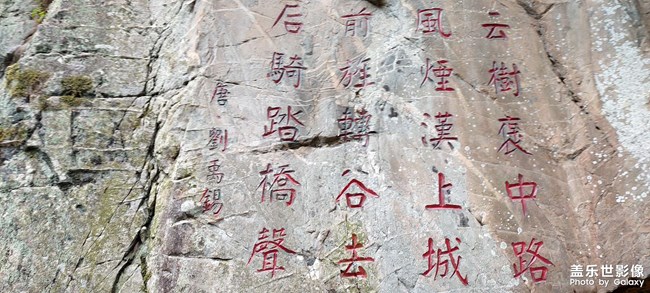 云樹褒中路
風煙漢上城
前旌轉谷去
後騎踏橋聲
唐·劉禹錫
盖乐世影像
Photo by Galaxy